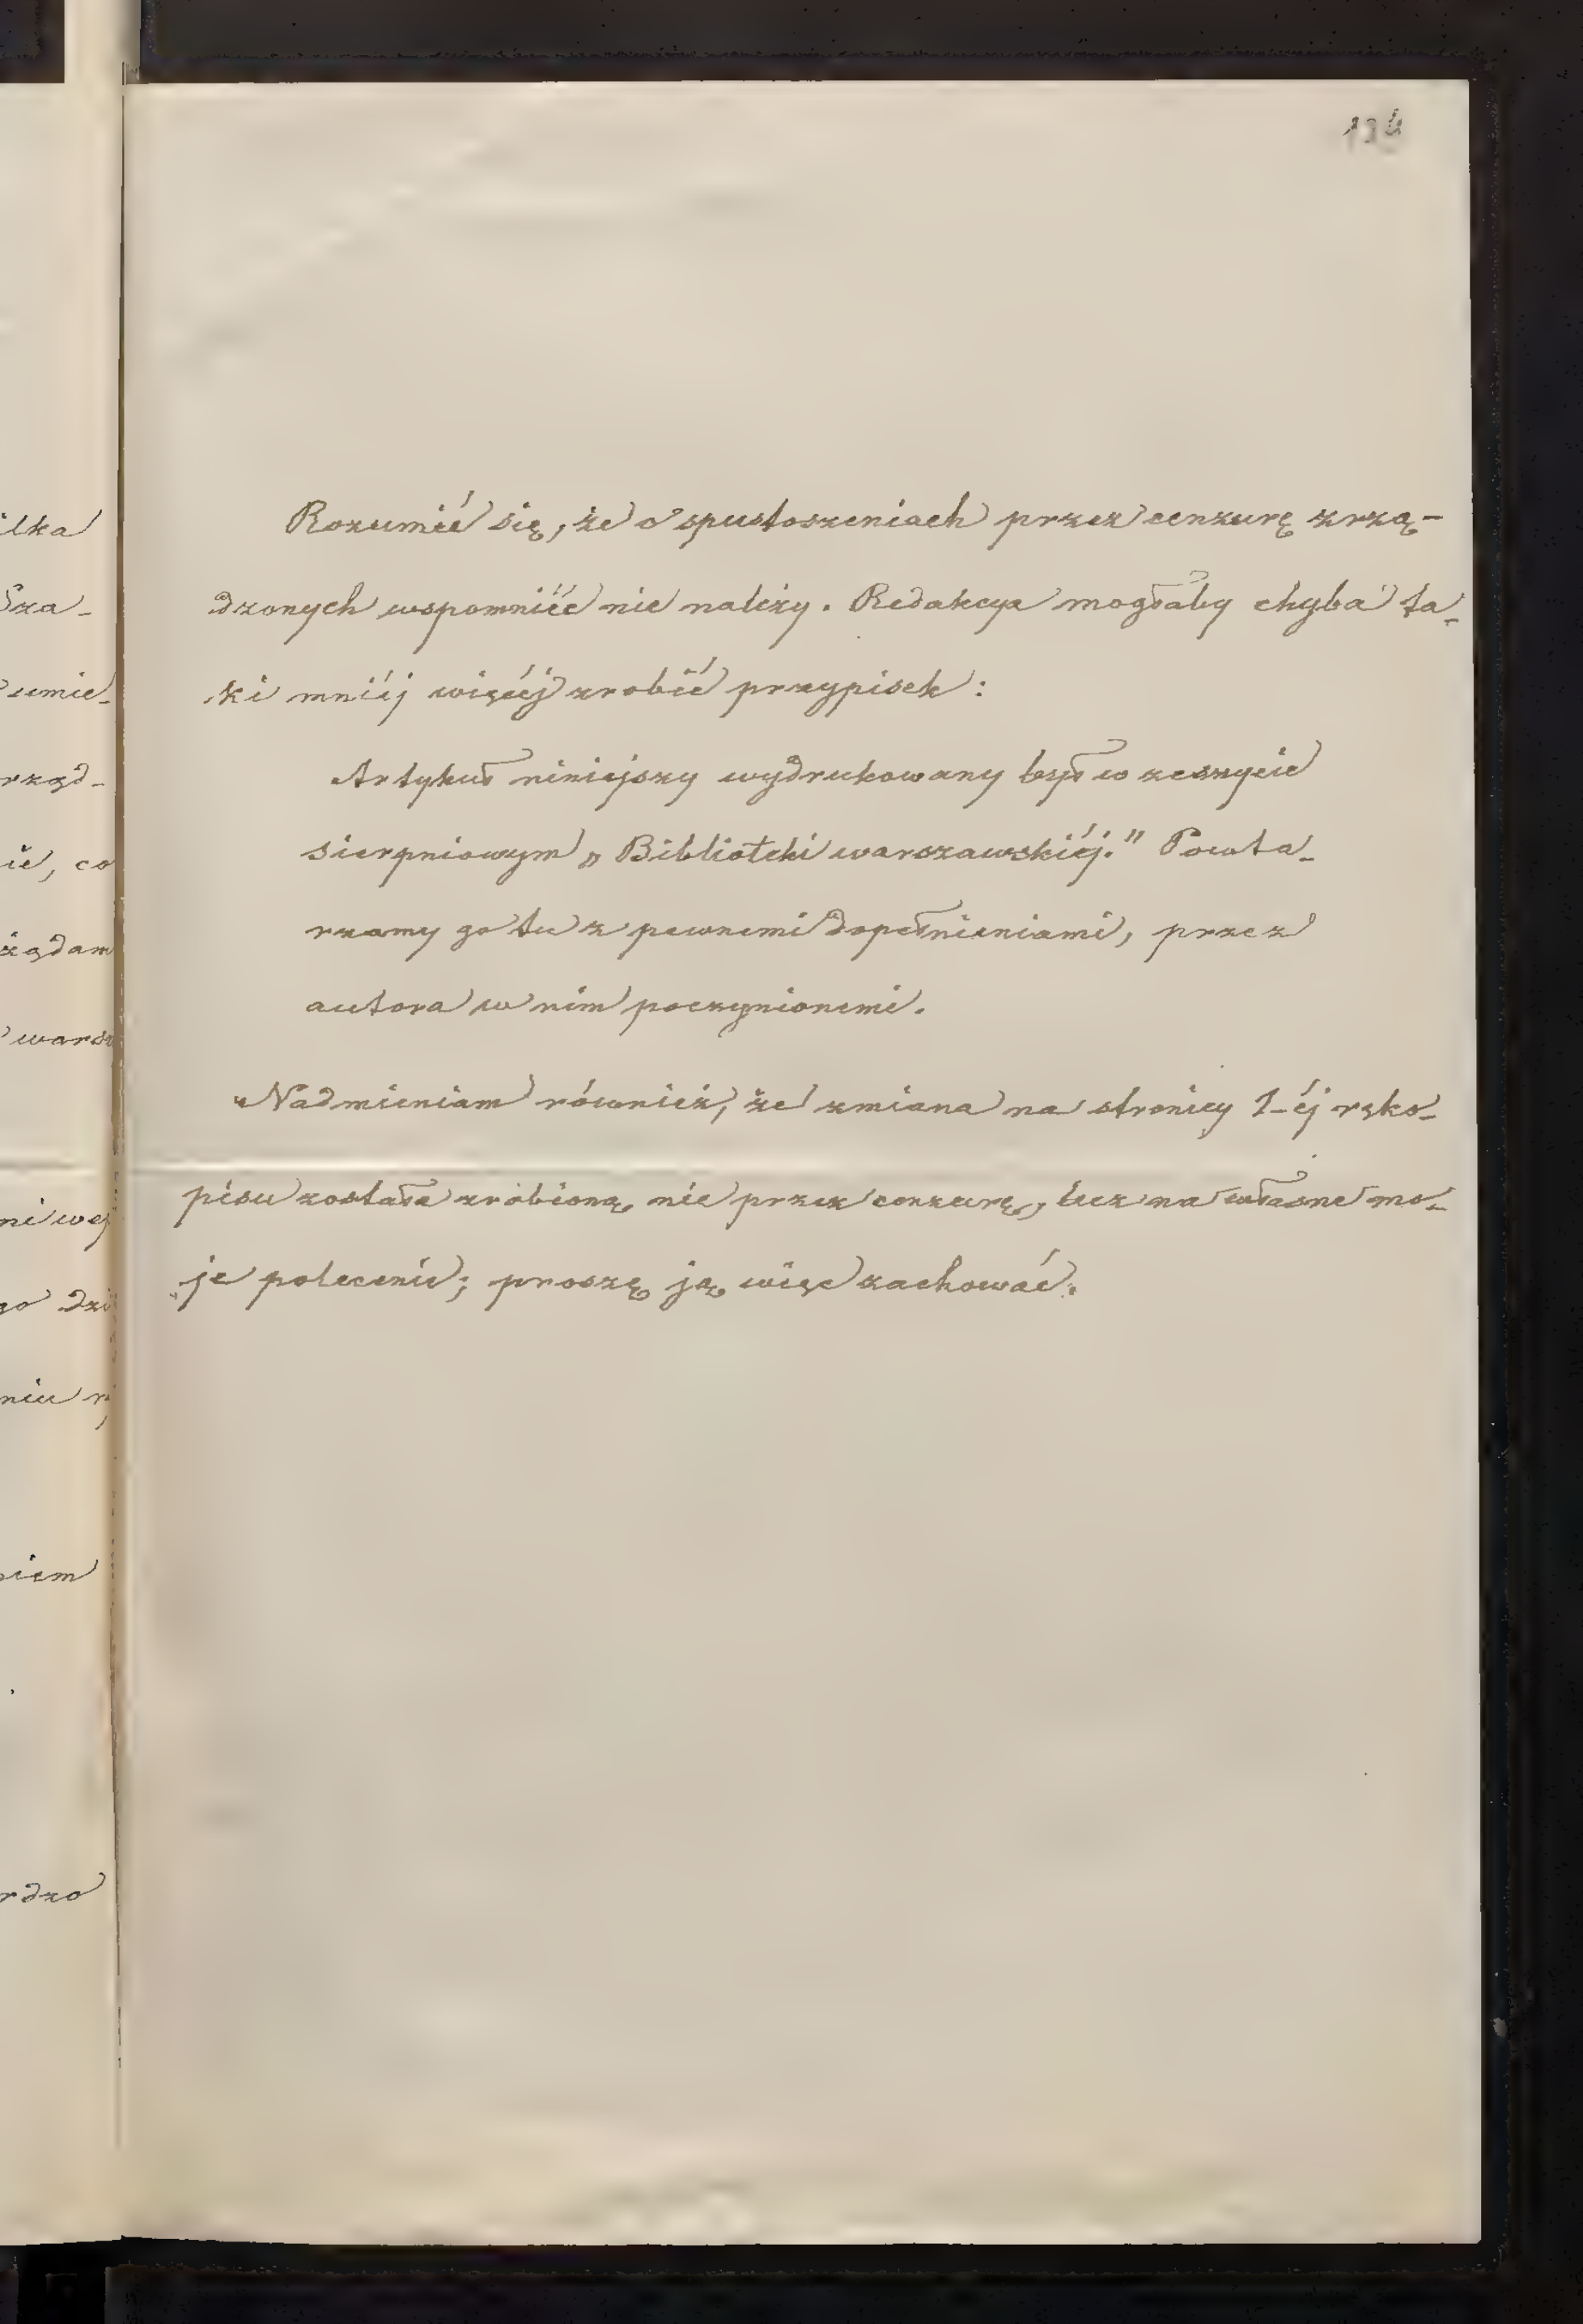 134
Rozumié się, że o spustoszeniach przez cenzurę zrzą-
dzonych wspomniéć nie należy. Redakcya mogłaby chyba ta-
ki mniéj więcéj zrobić przypisek:
Artykuł niniejszy wydrukowany był w zeszycie
sierpniowym „Biblioteki warszawskiéj." Powta-
rzamy go tu z pewnemi dopełnieniami, przez
autora w nim poczynionemi.
Nadmieniam również, że zmiana na stronicy 1-éj ręko-
pisu została zrobioną nie przez cenzurę, lecz na własne mo-
je polecenie; proszę ją więc zachować.
ilka
umie-
rząd-
ie, co
żądam
warsz
niu
rdzo